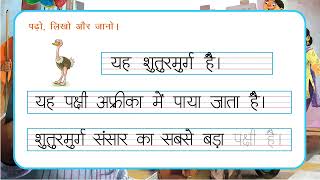 पढ़ो, लिखो और जानो।
यह शुतुरमुर्ग है।
यह पक्षी अफ्रीका में पाया जाता है।
शुतुरमुर्ग संसार का सबसे बड़ा पक्षी है।